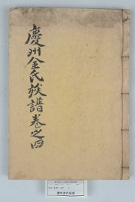 慶州金氏族譜卷之四